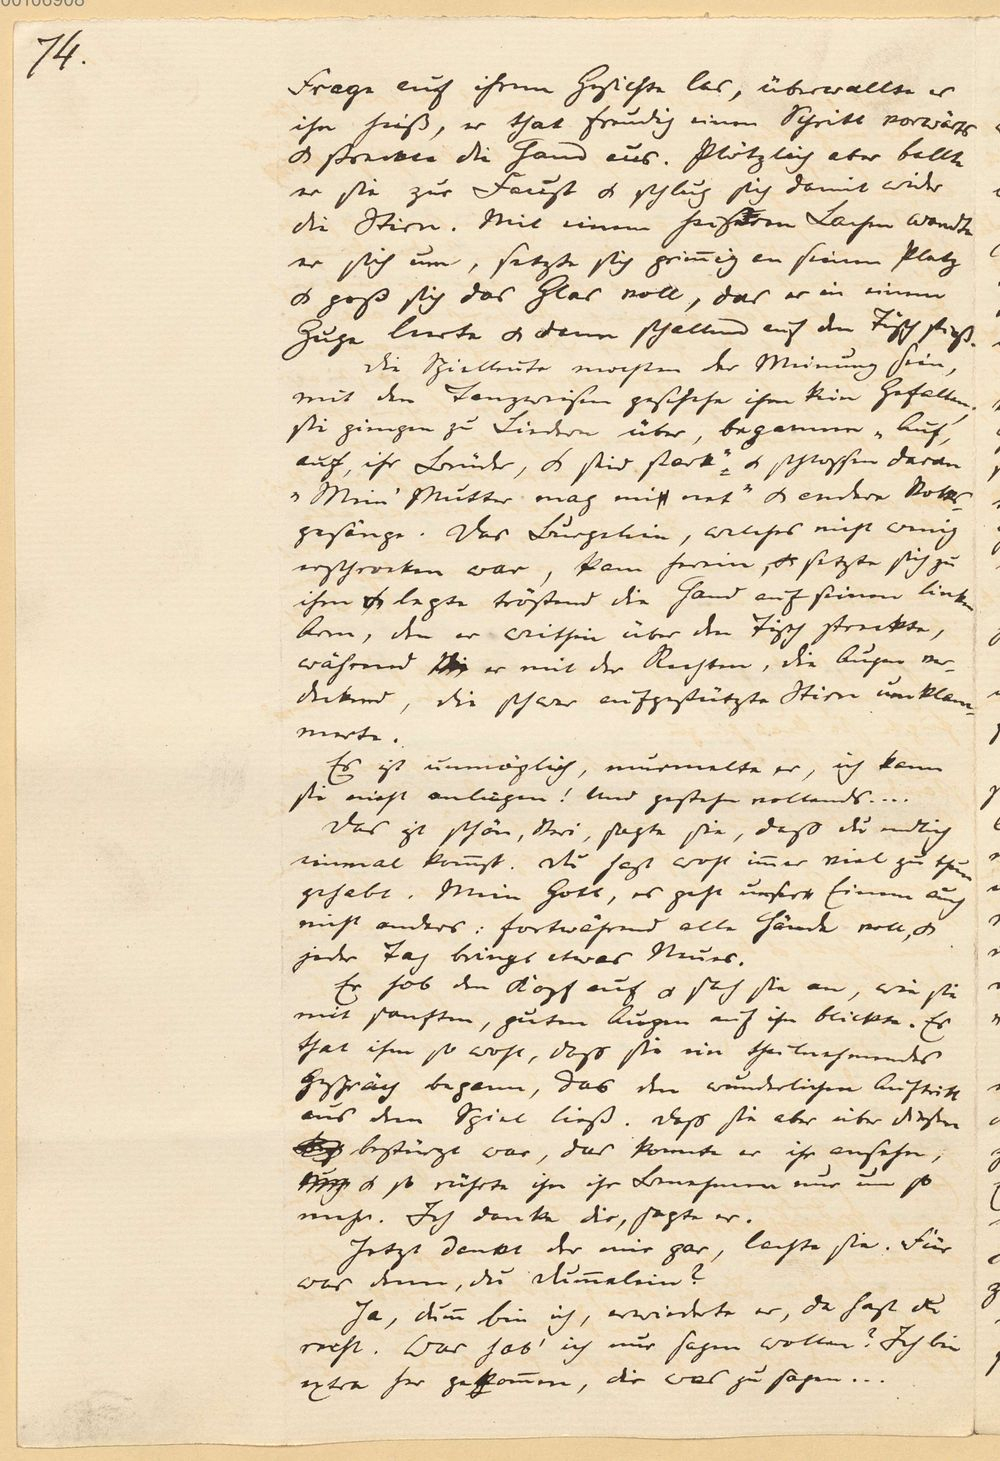 00106908
74.
Frage auf ihrem Gesichte las, überwallte es
ihn heiß, er that freudig einen Schritt vorwärts
& streckte die Hand aus. Plötzlich aber ballte
er sie zur Faust & schlug sich damit wider
die Stirn. Mit einem heiseren Lachen wandte
er sich um, setzte sich grimmig an seinen Platz
& goß sich das Glas voll, das er in einem
Zuge leerte & dann schallend auf den Tisch stieß.
Die Spielleute mochten der Meinung sein,
mit den Tanzweisen geschehe ihm kein Gefallen.
sie gingen zu Liedern über, begannen „Auf,
auf, ihr Brüder, & seid stark“ & schlossen daran
„Mein' Mutter mag mi net“ & andere Volks-
gesänge. Das Burgelein, welches nicht wenig
erschrocken war, kam herein, setzte sich zu
ihm & legte tröstend die Hand auf seinen linken
Arm, den er weithin über den Tisch streckte,
während er mit der Rechten, die Augen ver-
deckend, die schwer aufgestützte Stirn umklam-
merte.
Es ist unmöglich, murmelte er, ich kann
sie nicht anlügen! Und gestehn vollends....
Das ist schön, Veri, sagte sie, daß du endlich
einmal kommst. Du hast wohl immer viel zu thun
gehabt. Mein Gott, es geht unser Einem auch
nicht anders: fortwährend alle Hände voll, &
jeder Tag bringt etwas Neues.
Er hob den Kopf auf & sah sie an, wie sie
mit sanften, guten Augen auf ihn blickte. Es
that ihm so wohl, daß sie ein theilnehmendes
Gespräch begann, das den wunderlichen Auftritt
aus dem Spiel ließ. Daß sie aber über diesen
bestürzt war, das konnte er ihr ansehn,
& so rührte ihn ihr Benehmen nur um so
mehr. Ich danke dir, sagte er.
Jetzt dankt der mir gar, lachte sie. Für
was denn, du Dummelein?
Ja, dumm bin ich, erwiederte er, da hast du
recht. Was hab' ich nur sagen wollen? Ich bin
extra her gekommen, dir was zu sagen...